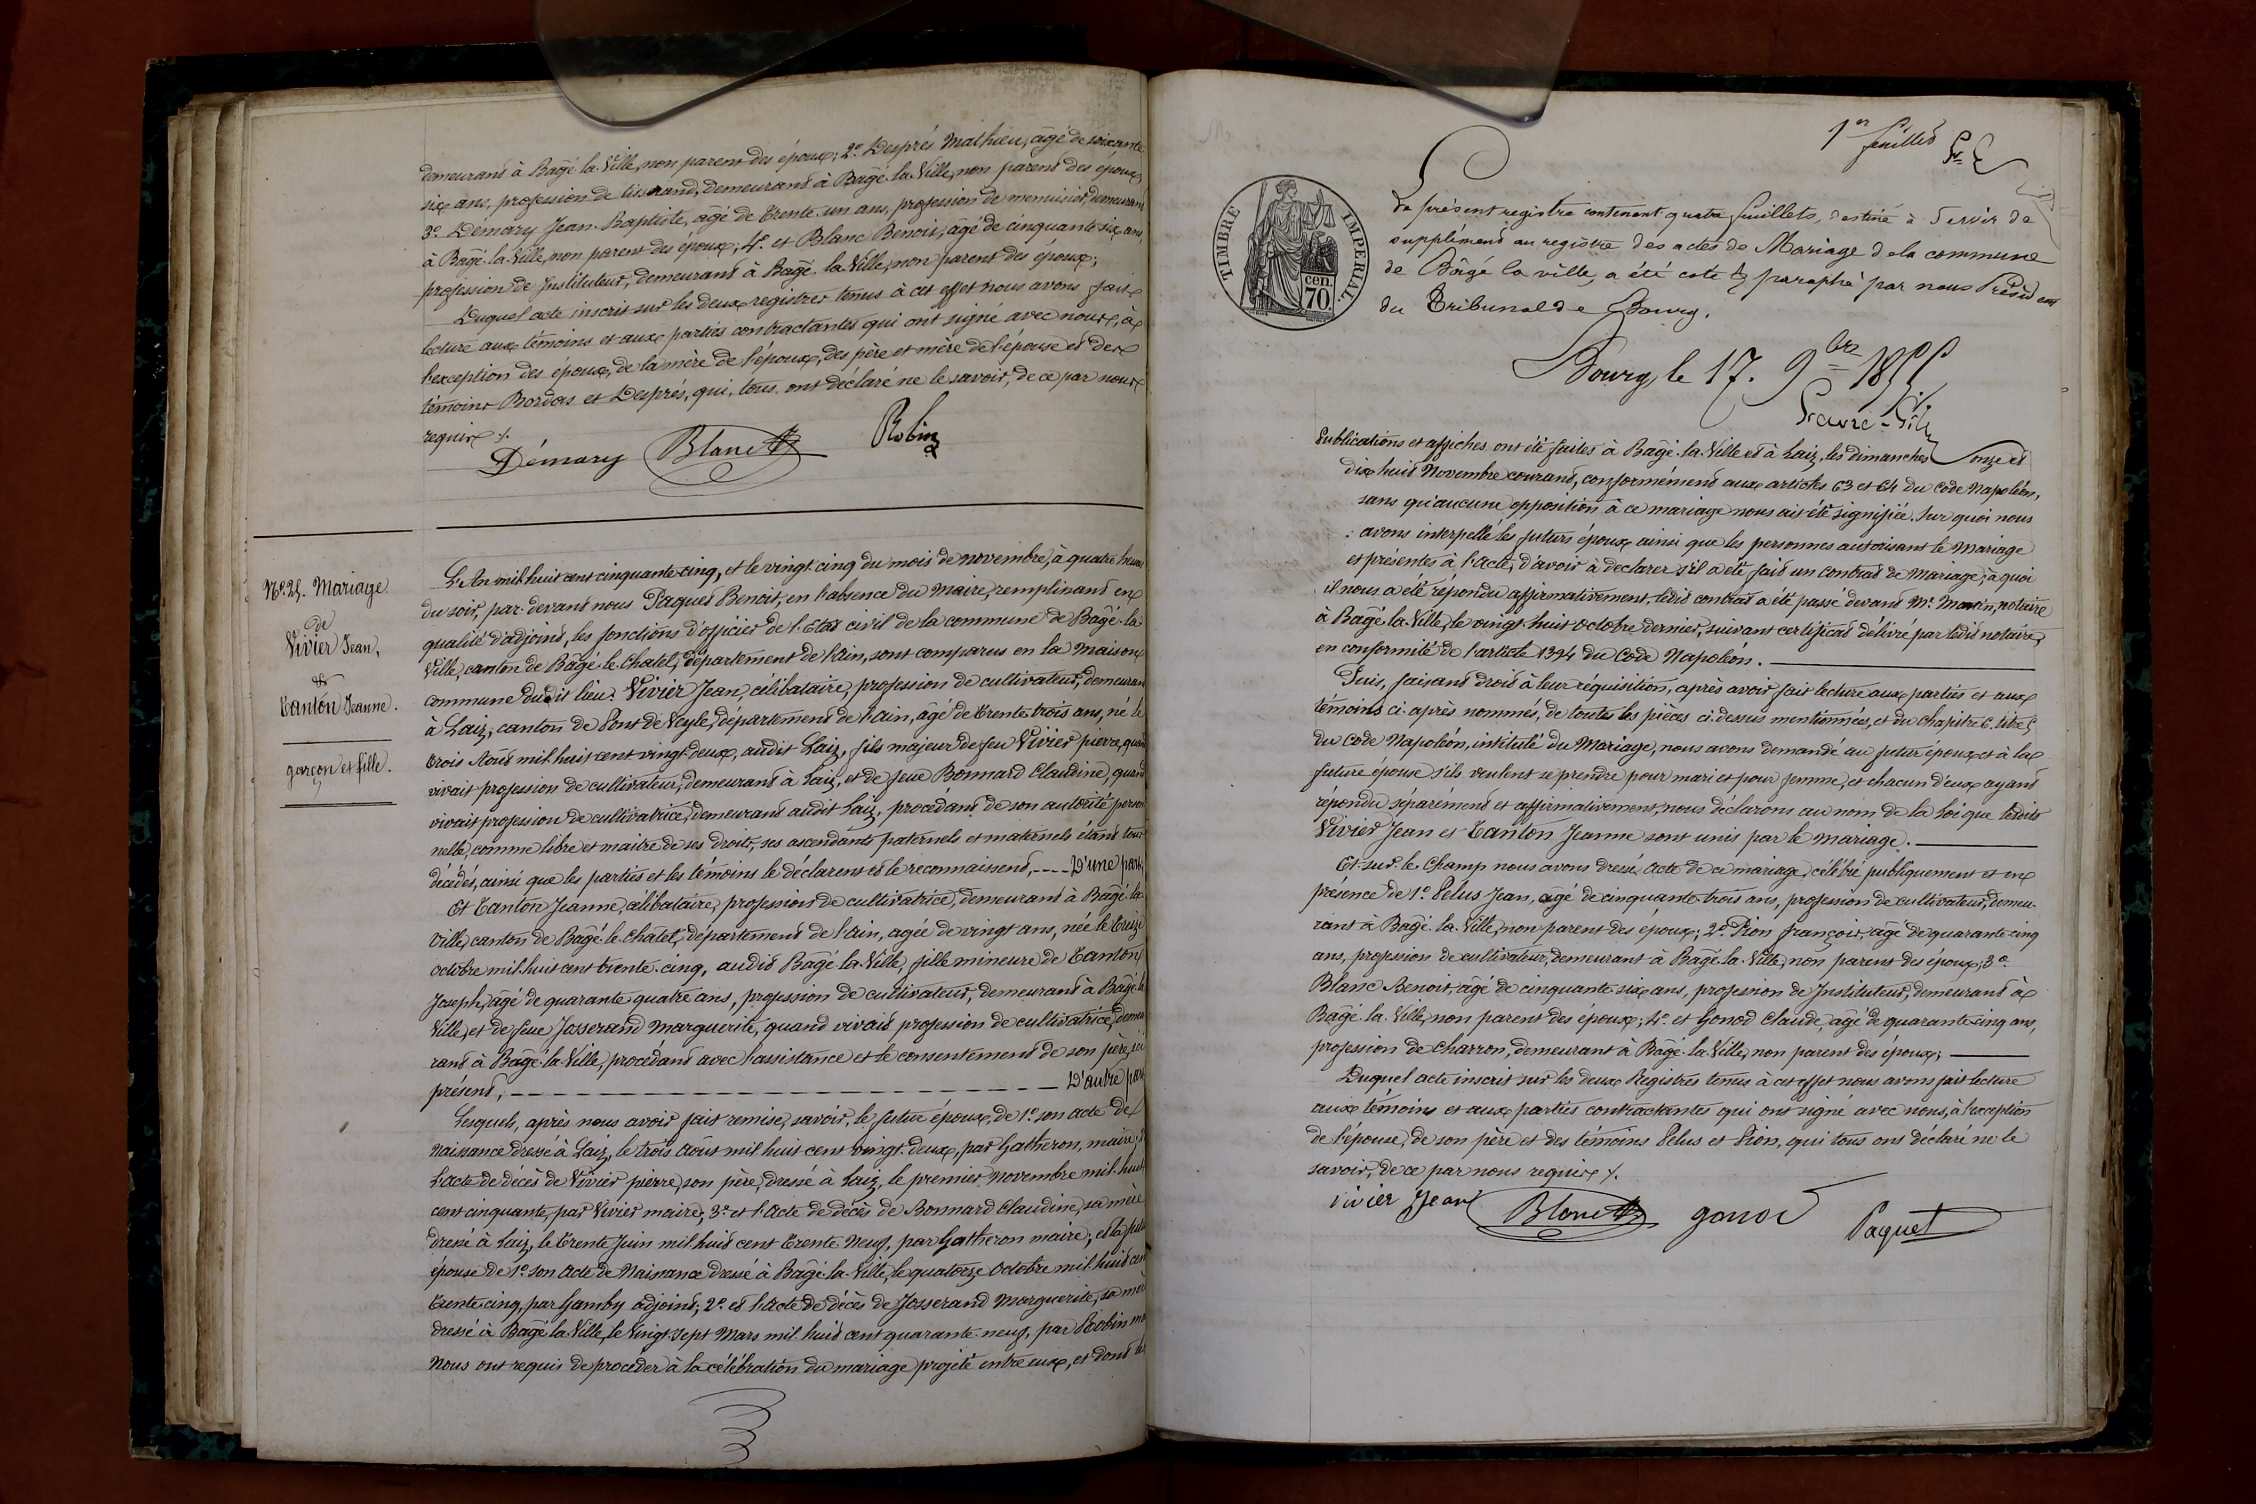 demeurant à Bâgé-la-Ville, non parent des époux; 2º Després Mathieu, âgé de soixante
six ans, profession de tisserand, demeurant à Bâgé-la-Ville, non parent des époux
3º Démary Jean-Baptiste, âgé de trente-un ans, profession de menuisier, demeurant
à Bâgé-la-Ville, non parent des époux; 4º et Blanc Benoit, âgé de cinquante-six ans,
profession de Instituteur, demeurant à Bâgé-la-Ville, non parent des époux;
Duquel acte inscrit sur les deux registres tenus à cet effet nous avons fait
lecture aux témoins et aux parties contractantes qui ont signé avec nous, à
l'exception des époux, de la mère de l'époux, des père et mère de l'épouse et des
témoins Bordas et Després, qui, tous ont déclaré ne le savoir, de ce par nous
requis ./.
Démary Blanc Robin
Nº 25. Mariage
de
Vivier Jean,
&
Tanton Jeanne.
garçon et fille.
L'An mil huit cent cinquante-cinq, et le vingt-cinq du mois de novembre, à quatre heures
du soir, par-devant nous Paquet Benoit, en l'absence du Maire, remplissant en
qualité d'adjoint, les fonctions d'officier de l'Etat civil de la commune de Bâgé-la-
Ville, canton de Bâgé-le-Chatel, département de l'Ain, sont comparus en la Maison
commune dudit lieu: Vivier Jean, célibataire, profession de cultivateur, demeurant
à Laiz, canton de Pont-de-Veyle, département de l'Ain, âgé de trente-trois ans, né le
trois Août mil huit cent vingt-deux, audit Laiz, fils majeur de feu Vivier pierre, quand
vivait profession de cultivateur, demeurant à Laiz, et de feue Bonnard Claudine, quand
vivait profession de cultivatrice, demeurant audit Laiz, procédant de son autorité person
nelle, comme libre et maitre de ses droits, ses ascendants paternels et maternels étant tous
décédés, ainsi que les parties et les témoins le déclarent et le reconnaissent, ---- D'une part,
Et Tanton Jeanne, célibataire, profession de cultivatrice, demeurant à Bâgé-la-
Ville, canton de Bâgé-le-Chatel, département de l'Ain, agée de vingt ans, née le treize
octobre mil huit cent trente-cinq, audit Bâgé-la-Ville, fille mineure de Tanton
Joseph, âgé de quarante-quatre ans, profession de cultivateur, demeurant à Bâgé-la-
Ville, et de feue Josserand Marguerite, quand vivait profession de cultivatrice, demeu
rant à Bâgé-la-Ville, procédant avec l'assistance et le consentement de son père, ici
présent, ---- D'autre part
Lesquels, après nous avoir fait remise, savoir, le futur époux, de 1º son acte de
Naissance dressé à Laiz, le trois Août mil huit cent vingt-deux, par Gatheron, maire;
L'acte de décès de Vivier pierre, son père, dressé à Laiz, le premier Novembre mil huit
cent cinquante, par Vivier maire; 3º et l'Acte de décès de Bonnard Claudine, sa mère
dressé à Laiz, le trente Juin mil huit cent trente-Neuf, par Gatheron maire; et la future
épouse de 1º son Acte de Naissance dressé à Bâgé-la-Ville, le quatorze Octobre mil huit cent
trente-cinq, par Gamby adjoint; 2º et l'Acte de décès de Josserand Marguerite, sa mère
dressé à Bâgé-la-Ville, le vingt-sept Mars mil huit cent quarante-neuf, par Robin
Nous ont requis de procéder à la célébration du mariage projeté entre eux, et dont les
1er feuillet
TIMBRE IMPERIAL.
cen.
70
Le présent registre contenant quatre feuillets, destiné à servir de
supplément au registre des actes de Mariage de la commune
de Bâgé la ville, a été coté & paraphé par nous Président
du Tribunal de Bourg.
Bourg, le 17. 9bre 1855
Publications et affiches ont été faites à Bâgé-la-Ville et à Laiz, les dimanches onze et
dix-huit Novembre courant, conformément aux articles 63 et 64 du Code Napoléon,
sans qu'aucune opposition à ce mariage nous ait été signifiée. Sur quoi nous
avons interpellé les futurs époux ainsi que les personnes autorisant le Mariage
et présentes à l'Acte, d'avoir à déclarer s'il a été fait un Contrat de Mariage; à quoi
il nous a été répondu affirmativement, ledit contrat a été passé devant Mº Morin, notaire
à Bâgé-la-Ville, le vingt-huit Octobre dernier, suivant certificat délivré par ledit notaire,
en conformité de l'article 1394 du Code Napoléon.
Puis, faisant droit à leur réquisition, après avoir fait lecture aux parties et aux
témoins ci-après nommés, de toutes les pièces ci-dessus mentionnées, et du chapitre 6 titre 5
du Code Napoléon, intitulé du Mariage, nous avons demandé au futur époux et à la
future épouse s'ils veulent se prendre pour mari et pour femme, et chacun d'eux ayant
répondu séparément et affirmativement, nous déclarons au nom de la loi que lesdits
Vivier Jean et Tanton Jeanne sont unis par le mariage.
Et sur-le-Champ nous avons dressé Acte de ce mariage, célébré publiquement et en
présence de 1º Pelus Jean, âgé de cinquante-trois ans, profession de cultivateur, demeu-
rant à Bâgé-la-Ville, non parent des époux; 2º Pion françois, âgé de quarante-cinq
ans, profession de cultivateur, demeurant à Bâgé-la-Ville, non parent des époux; 3º
Blanc Benoit, âgé de cinquante-six ans, profession de Instituteur, demeurant à
Bâgé-la-Ville, non parent des époux; 4º et Gonod Claude, âgé de quarante-cinq ans,
profession de Charron, demeurant à Bâgé-la-Ville, non parent des époux;
Duquel acte inscrit sur les deux Registres tenus à cet effet nous avons fait lecture
aux témoins et aux parties contractantes qui ont signé avec nous, à l'exception
de l'épouse, de son père et des témoins Pelus et Pion, qui tous ont déclaré ne le
savoir, de ce par nous requis ./.
vivier Jean Blanc gonod Paquet